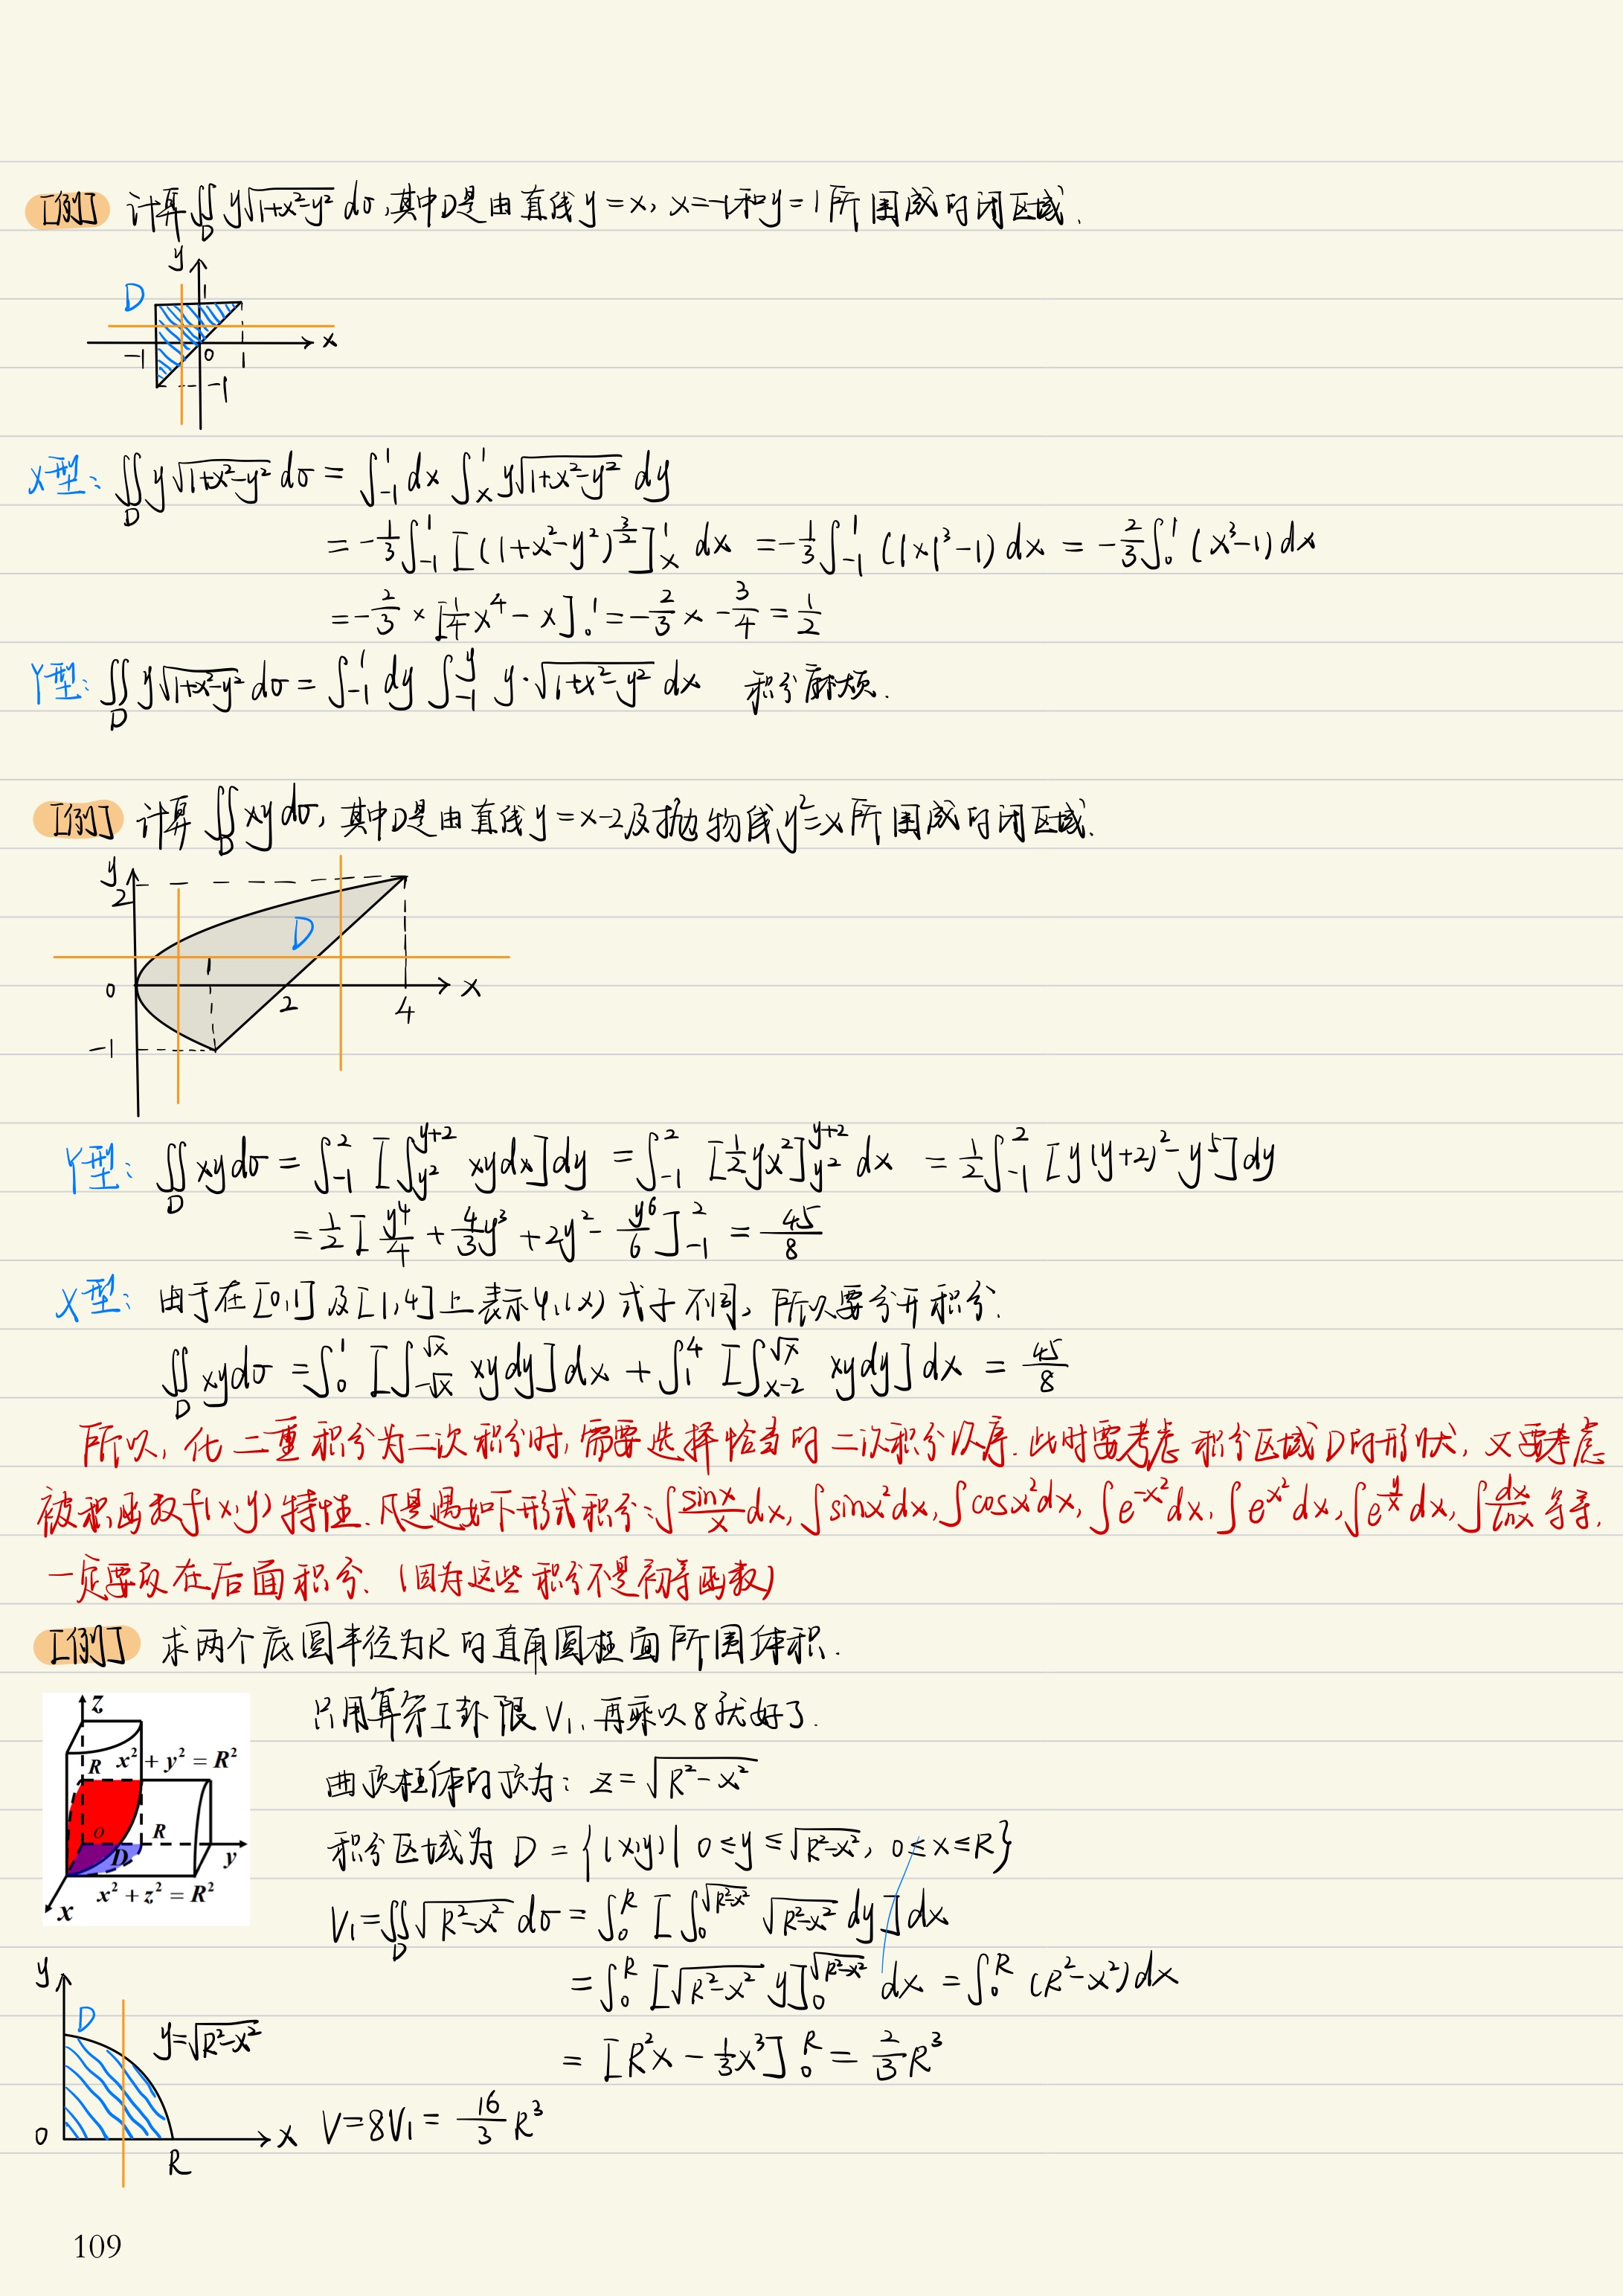 [例] 计算∬_D y√(1+x²-y²) dσ,其中D是由直线y=x, x=-1和y=1所围成的闭区域.
y
D 1
-1 0 1 x
-1
X型: ∬_D y√(1+x²-y²) dσ = ∫_{-1}^{1} dx ∫_x^1 y√(1+x²-y²) dy
= -1/3 ∫_{-1}^{1} [(1+x²-y²)^{3/2}]_x^1 dx = -1/3 ∫_{-1}^{1} (|x|³-1) dx = -2/3 ∫_0^1 (x³-1) dx
= -2/3 × [1/4 x⁴ - x]_0^1 = -2/3 × -3/4 = 1/2
Y型: ∬_D y√(1+x²-y²) dσ = ∫_{-1}^{1} dy ∫_{-1}^{y} y·√(1+x²-y²) dx 积分麻烦.
[例] 计算 ∬_D xy dσ, 其中D是由直线y=x-2及抛物线y²=x所围成的闭区域.
y
2
D
1
0 2 4 x
-1
Y型: ∬_D xy dσ = ∫_{-1}^{2} [∫_{y²}^{y+2} xy dx] dy = ∫_{-1}^{2} [1/2 yx²]_{y²}^{y+2} dx = 1/2 ∫_{-1}^{2} [y(y+2)² - y⁵] dy
= 1/2 [y⁴/4 + 4/3 y³ + 2y² - y⁶/6]_{-1}^{2} = 45/8
X型: 由于在[0,1]及[1,4]上表示φ₁(x)式子不同, 所以要分开积分.
∬_D xy dσ = ∫_0^1 [∫_{-√x}^{√x} xy dy] dx + ∫_1^4 [∫_{x-2}^{√x} xy dy] dx = 45/8
所以, 化二重积分为二次积分时, 需要选择恰当的二次积分次序. 此时要考虑积分区域D的形状, 又要考虑
被积函数f(x,y)特性. 凡是遇如下形式积分: ∫ sinx/x dx, ∫ sinx² dx, ∫ cosx² dx, ∫ e^{-x²} dx, ∫ e^{x²} dx, ∫ e^{y/x} dx, ∫ dx/lnx 等等,
一定要放在后面积分. (因为这些积分不是初等函数)
[例] 求两个底圆半径为R的直角圆柱面所围体积.
z
R x² + y² = R²
o R
D y
x² + z² = R²
x
只用算第I卦限V₁, 再乘以8就好了.
曲顶柱体的顶为: z = √(R²-x²)
积分区域为 D = {(x,y) | 0≤y≤√(R²-x²), 0≤x≤R}
V₁ = ∬_D √(R²-x²) dσ = ∫_0^R [∫_0^{√(R²-x²)} √(R²-x²) dy] dx
= ∫_0^R [√(R²-x²) y]_0^{√(R²-x²)} dx = ∫_0^R (R²-x²) dx
= [R²x - 1/3 x³]_0^R = 2/3 R³
V = 8V₁ = 16/3 R³
y
D
y=√(R²-x²)
0 R x
109